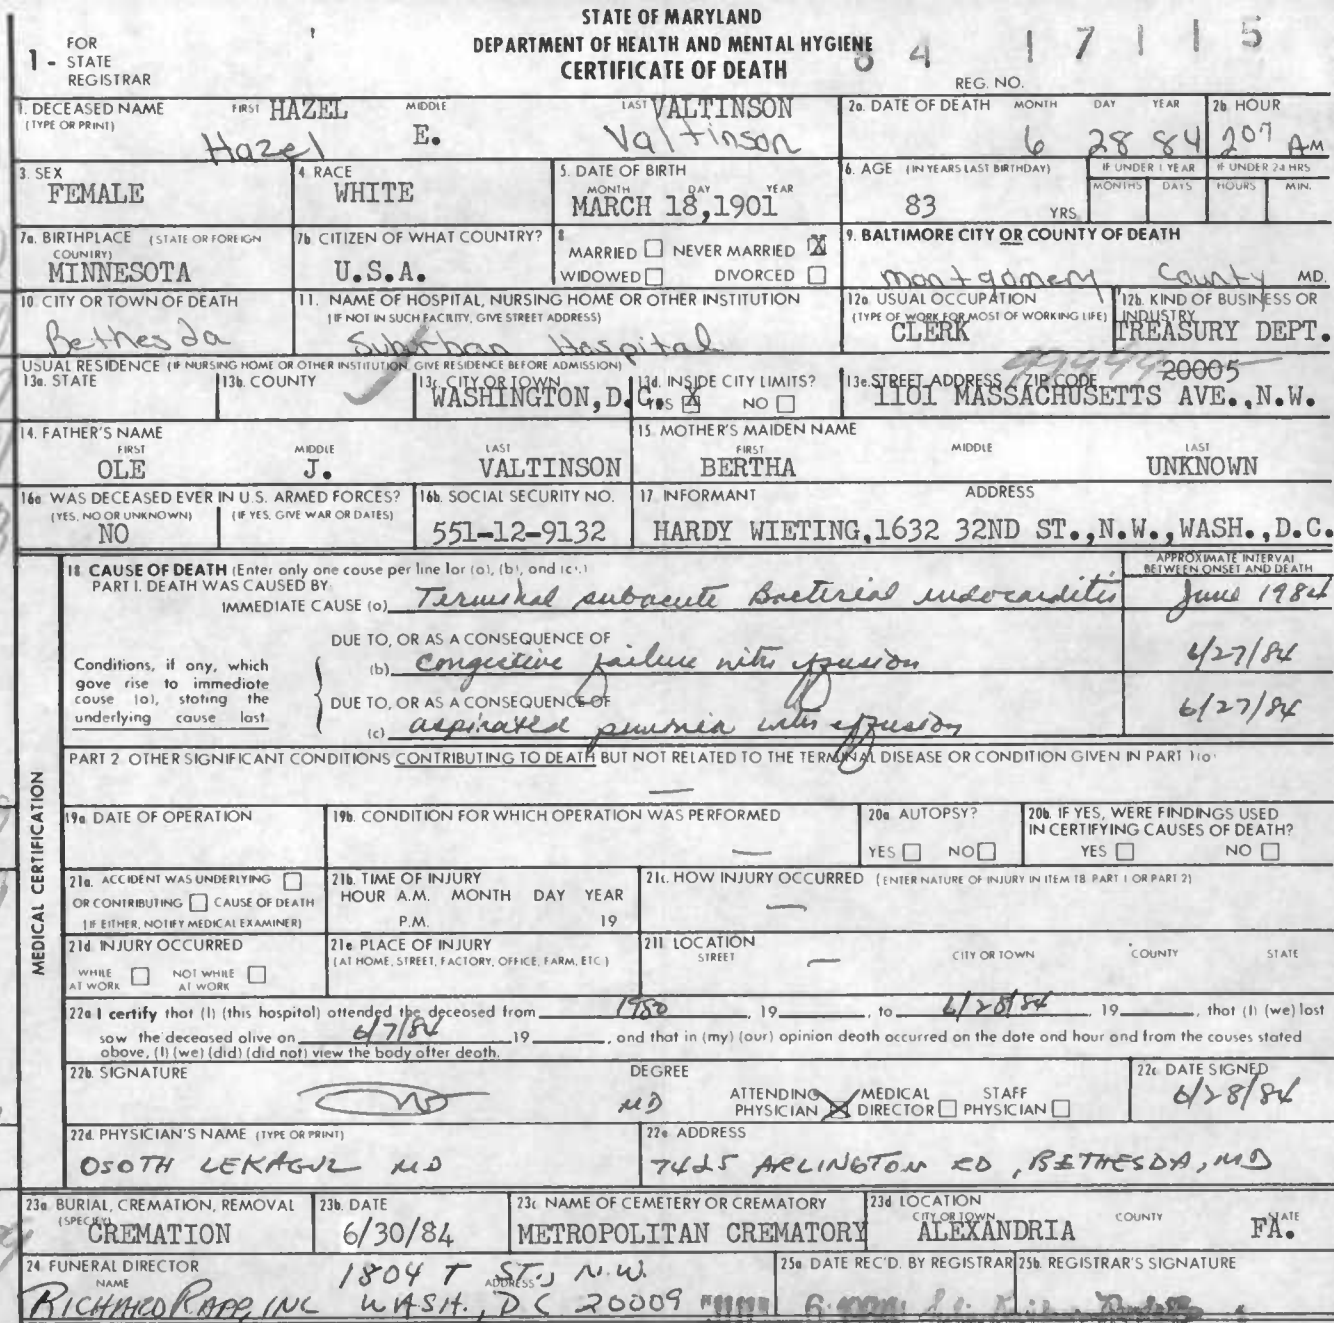 STATE OF MARYLAND
DEPARTMENT OF HEALTH AND MENTAL HYGIENE
CERTIFICATE OF DEATH
1 - FOR STATE REGISTRAR
84 17115
REG. NO.
1. DECEASED NAME (TYPE OR PRINT) FIRST HAZEL MIDDLE E. LAST VALTINSON
Hazel Valtinson
2a. DATE OF DEATH MONTH DAY YEAR 6 28 84
2b. HOUR 207 AM
3. SEX FEMALE
4. RACE WHITE
5. DATE OF BIRTH MONTH DAY YEAR MARCH 18,1901
6. AGE (IN YEARS LAST BIRTHDAY) 83 YRS.
IF UNDER 1 YEAR MONTHS DAYS
IF UNDER 24 HRS HOURS MIN.
7a. BIRTHPLACE (STATE OR FOREIGN COUNTRY) MINNESOTA
7b. CITIZEN OF WHAT COUNTRY? U.S.A.
8 MARRIED NEVER MARRIED X
WIDOWED DIVORCED
9. BALTIMORE CITY OR COUNTY OF DEATH
Montgomery County MD.
10. CITY OR TOWN OF DEATH Bethesda
11. NAME OF HOSPITAL, NURSING HOME OR OTHER INSTITUTION
(IF NOT IN SUCH FACILITY, GIVE STREET ADDRESS)
Suburban Hospital
12a. USUAL OCCUPATION
(TYPE OF WORK FOR MOST OF WORKING LIFE)
CLERK
12b. KIND OF BUSINESS OR INDUSTRY
TREASURY DEPT.
USUAL RESIDENCE (IF NURSING HOME OR OTHER INSTITUTION, GIVE RESIDENCE BEFORE ADMISSION)
13a. STATE
13b. COUNTY
13c. CITY OR TOWN WASHINGTON,D.C.
13d. INSIDE CITY LIMITS? YES X NO
13e. STREET ADDRESS / ZIP CODE 99999 20005
1101 MASSACHUSETTS AVE.,N.W.
14. FATHER'S NAME FIRST MIDDLE LAST
OLE J. VALTINSON
15. MOTHER'S MAIDEN NAME FIRST MIDDLE LAST
BERTHA UNKNOWN
16a WAS DECEASED EVER IN U.S. ARMED FORCES?
(YES, NO OR UNKNOWN) (IF YES, GIVE WAR OR DATES)
NO
16b. SOCIAL SECURITY NO.
551-12-9132
17 INFORMANT ADDRESS
HARDY WIETING,1632 32ND ST.,N.W.,WASH.,D.C.
MEDICAL CERTIFICATION
18 CAUSE OF DEATH (Enter only one cause per line for (a), (b), and (c).)
APPROXIMATE INTERVAL BETWEEN ONSET AND DEATH
PART I. DEATH WAS CAUSED BY:
IMMEDIATE CAUSE (a) Terminal subacute Bacterial endocarditis June 1984
DUE TO, OR AS A CONSEQUENCE OF
(b) congestive failure with effusion 6/27/84
Conditions, if any, which gave rise to immediate cause (a), stating the underlying cause last
DUE TO, OR AS A CONSEQUENCE OF
(c) aspirated pnumonia with effusion 6/27/84
PART 2 OTHER SIGNIFICANT CONDITIONS CONTRIBUTING TO DEATH BUT NOT RELATED TO THE TERMINAL DISEASE OR CONDITION GIVEN IN PART 1(a)
—
19a DATE OF OPERATION
19b. CONDITION FOR WHICH OPERATION WAS PERFORMED
—
20a AUTOPSY? YES NO
20b. IF YES, WERE FINDINGS USED IN CERTIFYING CAUSES OF DEATH? YES NO
21a. ACCIDENT WAS UNDERLYING
OR CONTRIBUTING CAUSE OF DEATH
(IF EITHER, NOTIFY MEDICAL EXAMINER)
21b. TIME OF INJURY
HOUR A.M. MONTH DAY YEAR
P.M. 19
21c. HOW INJURY OCCURRED (ENTER NATURE OF INJURY IN ITEM 18 PART 1 OR PART 2)
—
21d. INJURY OCCURRED
WHILE AT WORK NOT WHILE AT WORK
21e PLACE OF INJURY
(AT HOME, STREET, FACTORY, OFFICE, FARM, ETC.)
21f. LOCATION STREET CITY OR TOWN COUNTY STATE
—
22a I certify that (I) (this hospital) attended the deceased from 1980, 19 , to 6/28/84, 19 , that (I) (we) last
saw the deceased alive on 6/7/84 19 , and that in (my) (our) opinion death occurred on the date and hour and from the causes stated
above, (I) (we) (did) (did not) view the body after death.
22b. SIGNATURE
DEGREE MD
ATTENDING PHYSICIAN X MEDICAL DIRECTOR STAFF PHYSICIAN
22c DATE SIGNED 6/28/84
22d. PHYSICIAN'S NAME (TYPE OR PRINT)
OSOTH LEKAGUL MD
22e ADDRESS
7425 ARLINGTON RD, BETHESDA, MD
23a BURIAL, CREMATION, REMOVAL (SPECIFY) CREMATION
23b. DATE 6/30/84
23c NAME OF CEMETERY OR CREMATORY METROPOLITAN CREMATORY
23d LOCATION CITY OR TOWN COUNTY STATE
ALEXANDRIA FA.
24 FUNERAL DIRECTOR NAME ADDRESS
1804 T ST., N.W.
RICHARD RAPP, INC WASH., DC 20009
25a DATE REC'D. BY REGISTRAR
25b. REGISTRAR'S SIGNATURE